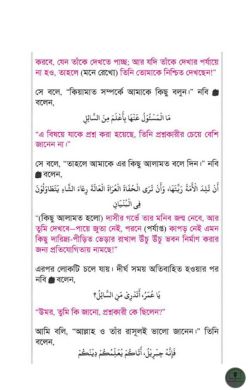 করবে, যেন তাঁকে দেখতে পাচ্ছ; আর যদি তাঁকে দেখার পর্যায়ে
না হও, তাহলে (মনে রেখো) তিনি তোমাকে নিশ্চিত দেখছেন!”
সে বলে, “কিয়ামাত সম্পর্কে আমাকে কিছু বলুন।” নবি ﷺ
বলেন,
مَا الْمَسْئُولُ عَنْهَا بِأَعْلَمَ مِنَ السَّائِلِ
“এ বিষয়ে যাকে প্রশ্ন করা হয়েছে, তিনি প্রশ্নকারীর চেয়ে বেশি
জানেন না।”
সে বলে, “তাহলে আমাকে এর কিছু আলামত বলে দিন।” নবি
ﷺ বলেন,
أَنْ تَلِدَ الْأَمَةُ رَبَّتَهَا، وَأَنْ تَرَى الْحُفَاةَ الْعُرَاةَ الْعَالَةَ رِعَاءَ الشَّاءِ يَتَطَاوَلُونَ
فِي الْبُنْيَانِ
“(কিছু আলামত হলো) দাসীর গর্ভে তার মনিব জন্ম নেবে, আর
তুমি দেখবে—পায়ে জুতা নেই, পরনে (পর্যাপ্ত) কাপড় নেই এমন
কিছু দারিদ্র্য-পীড়িত ভেড়ার রাখাল উঁচু উঁচু ভবন নির্মাণ করার
জন্য প্রতিযোগিতায় নামছে!”
এরপর লোকটি চলে যায়। দীর্ঘ সময় অতিবাহিত হওয়ার পর
নবি ﷺ বলেন,
يَا عُمَرُ، أَتَدْرِي مَنِ السَّائِلُ؟
“উমর, তুমি কি জানো, প্রশ্নকারী কে ছিলেন?”
আমি বলি, “আল্লাহ ও তাঁর রাসূলই ভালো জানেন।” তিনি
বলেন,
فَإِنَّهُ جِبْرِيلُ، أَتَاكُمْ يُعَلِّمُكُمْ دِينَكُمْ